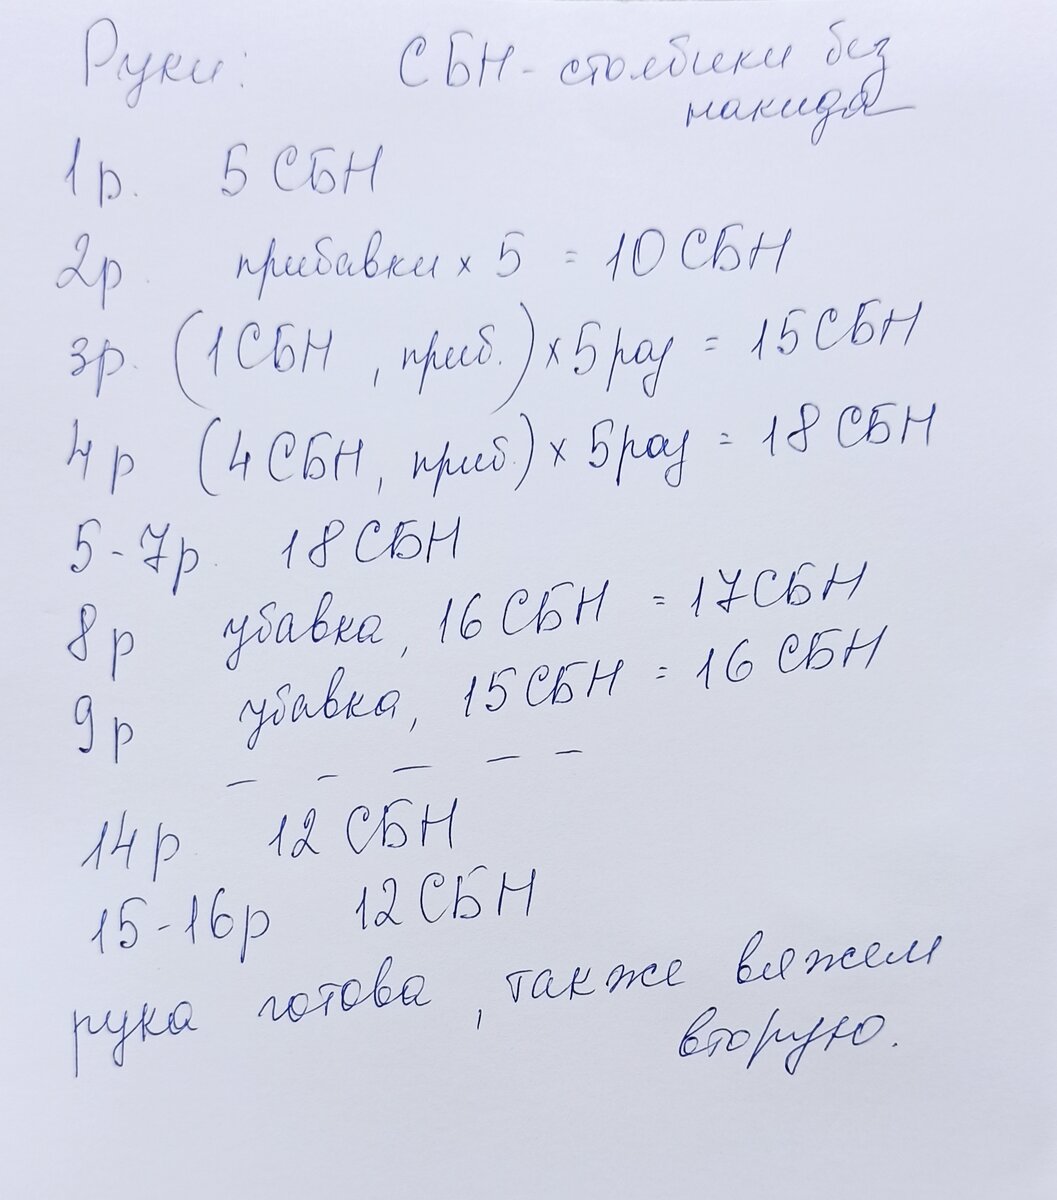 Руки: СБН - столбики без
накида
1р. 5 СБН
2р. прибавки × 5 = 10 СБН
3р. (1 СБН, приб.) × 5 раз = 15 СБН
4р (4 СБН, приб.) × 5 раз = 18 СБН
5-7р. 18 СБН
8р убавка, 16 СБН = 17 СБН
9р убавка, 15 СБН = 16 СБН
– – – – –
14р 12 СБН
15-16р 12 СБН
рука готова, также вяжем
вторую.